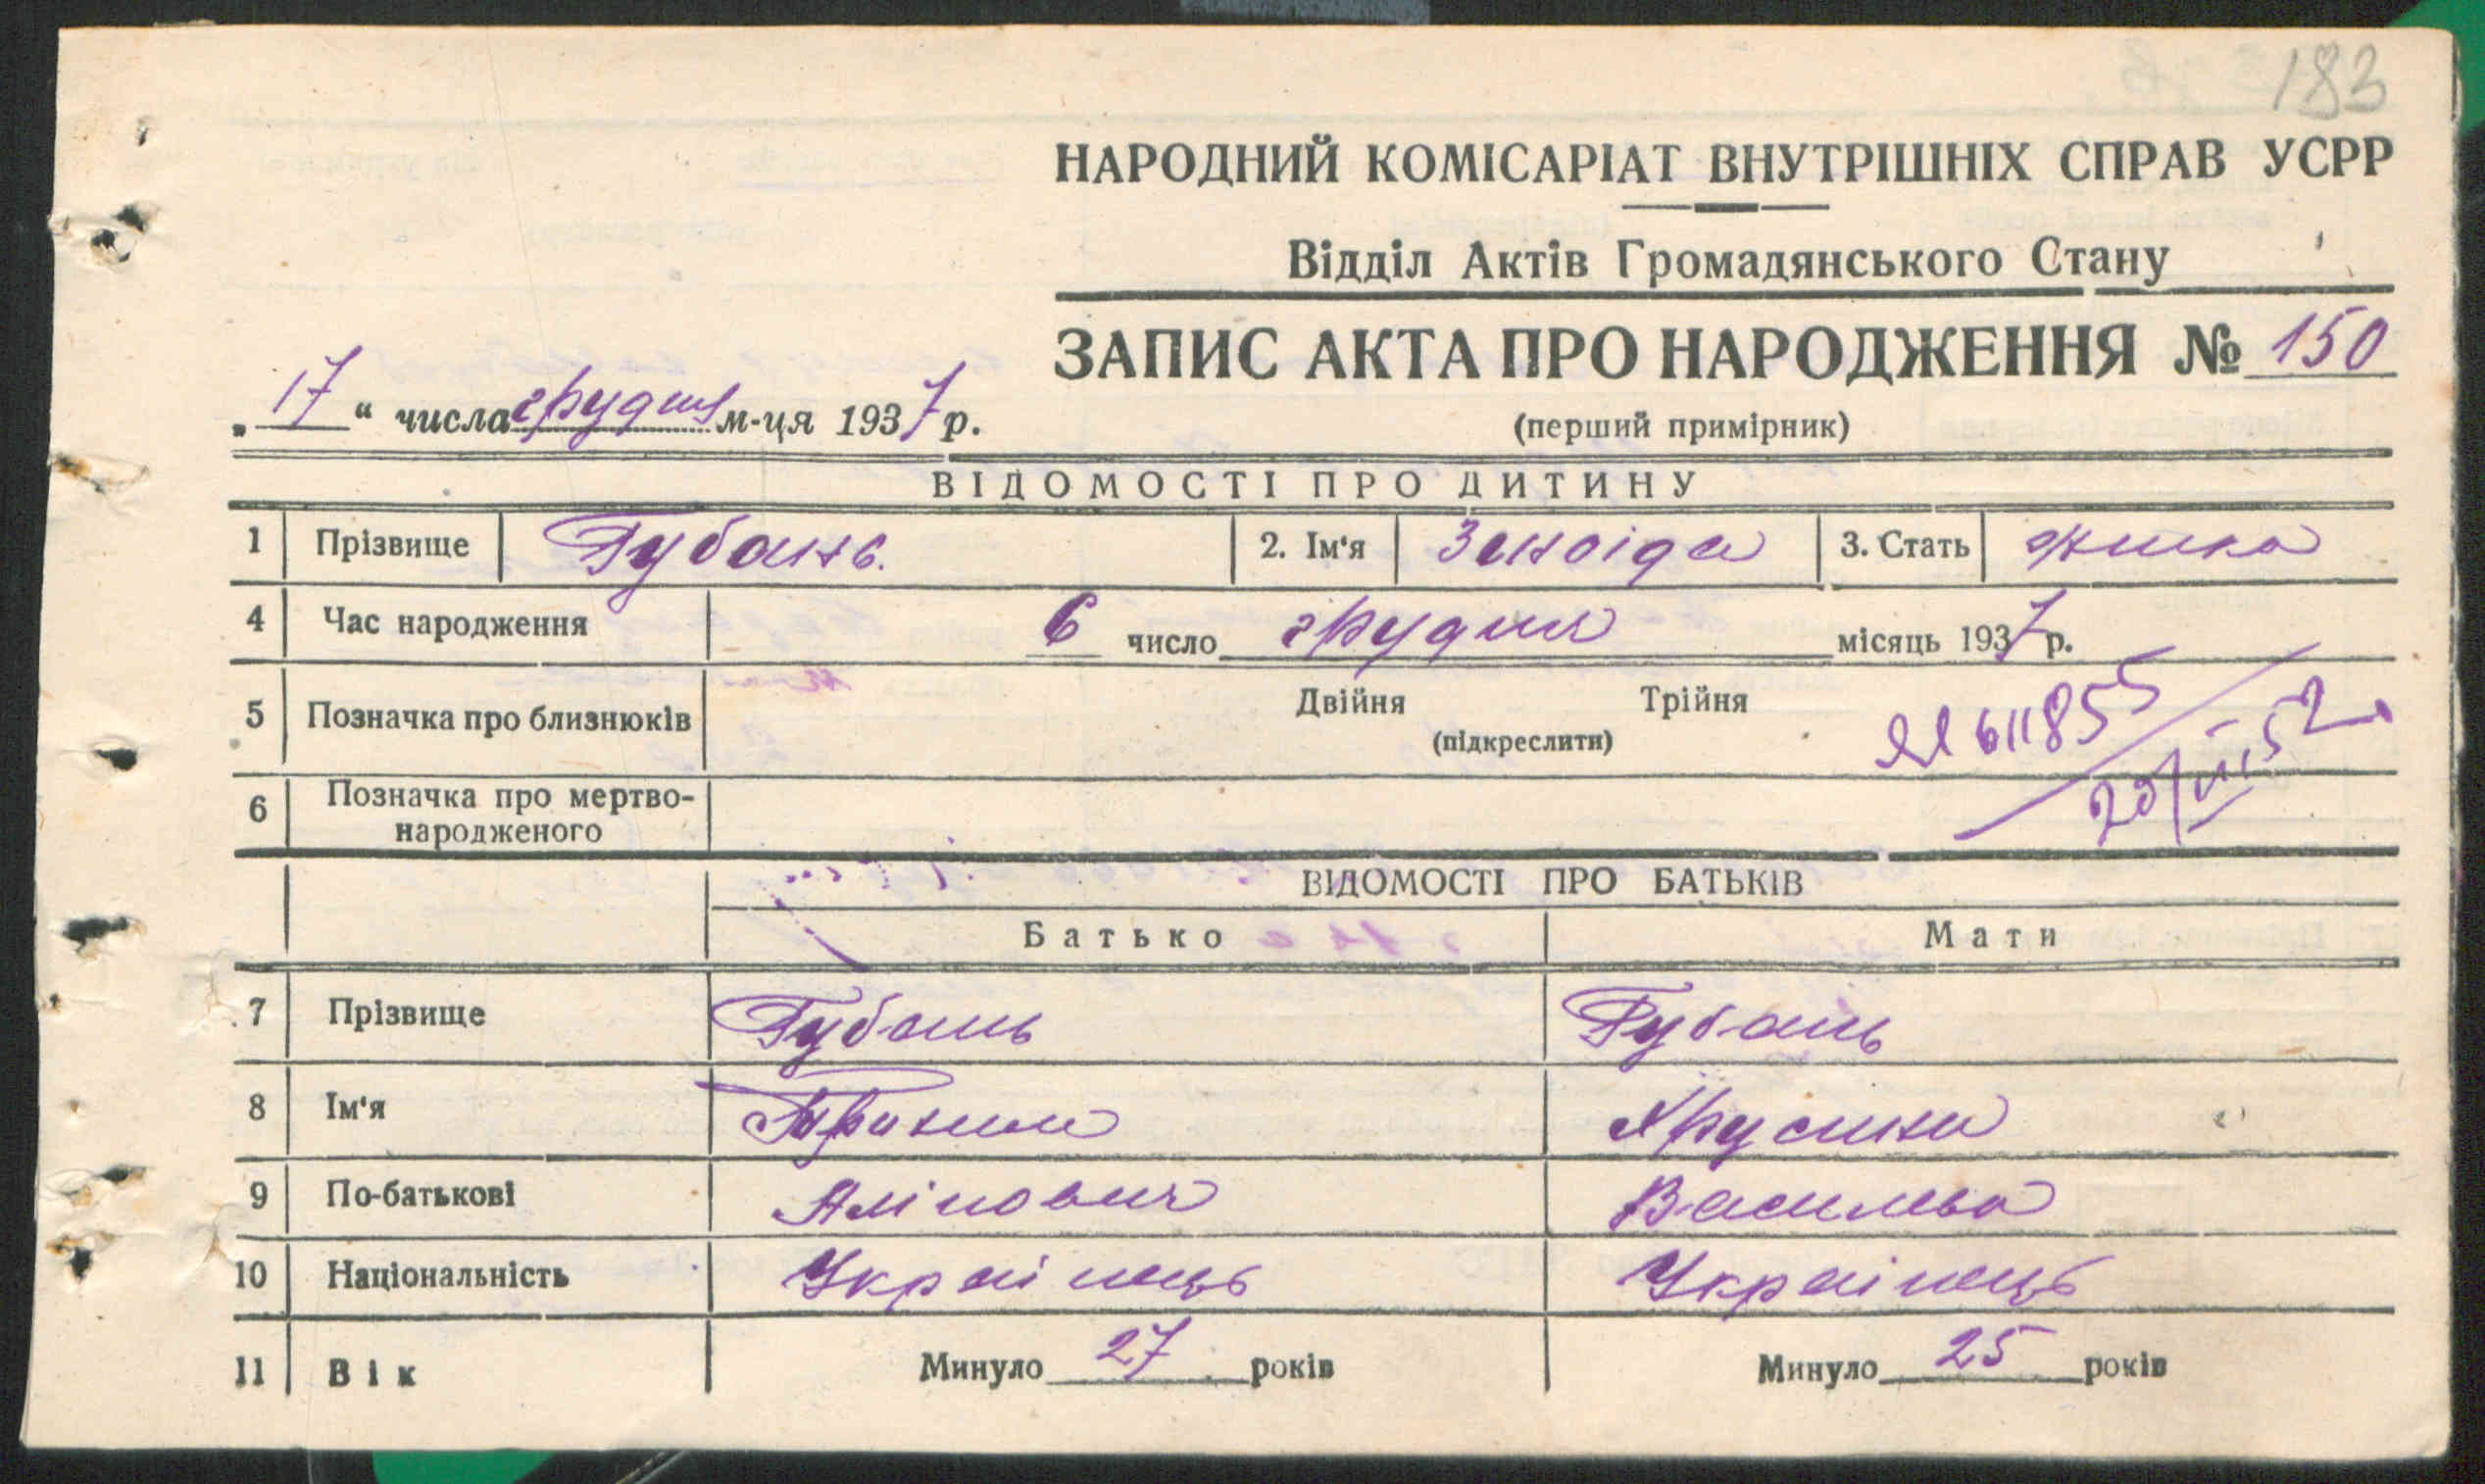 183
НАРОДНИЙ КОМІСАРІАТ ВНУТРІШНІХ СПРАВ УСРР
Відділ Актів Громадянського Стану
ЗАПИС АКТА ПРО НАРОДЖЕННЯ № 150
„17“ числа грудня м-ця 1937 р.
(перший примірник)
ВІДОМОСТІ ПРО ДИТИНУ
1 Прізвище Губань. 2. Ім‘я Зиноіда 3. Стать жінка
4 Час народження 6 число грудня місяць 1937 р.
5 Позначка про близнюків Двійня Трійня
(підкреслити)
611855
6 Позначка про мертво-
народженого
ВІДОМОСТІ ПРО БАТЬКІВ
Батько Мати
7 Прізвище Губань Губань
8 Ім‘я
9 По-батькові Василева
10 Національність Українець Українець
11 Вік Минуло 27 років Минуло 25 років